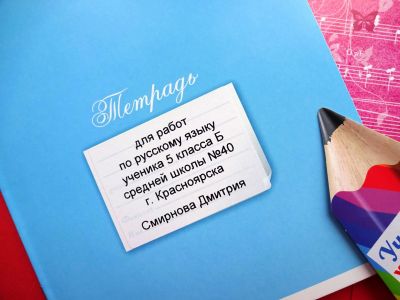 Тетрадь
для работ
по русскому языку
ученика 5 класса Б
средней школы №40
г. Красноярска
Смирнова Дмитрия